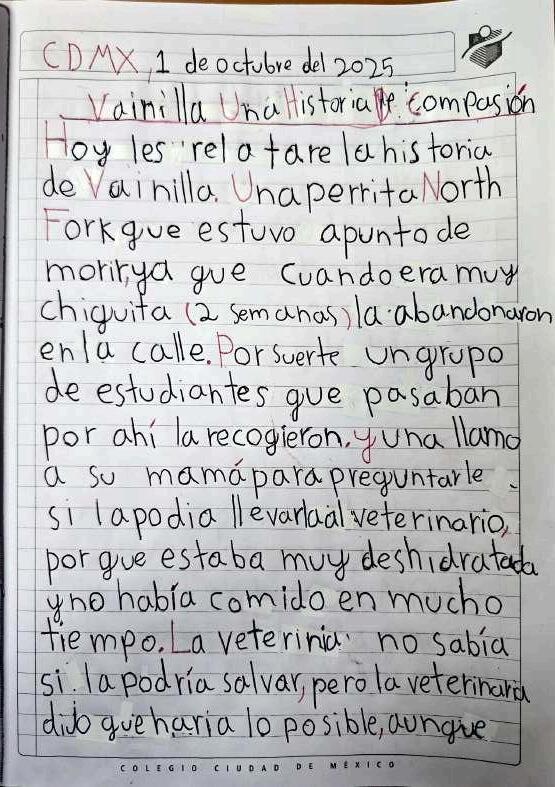 CDMX, 1 de octubre del 2025
Vainilla Una Historia De Compasión
Hoy les relatare la historia
de Vainilla. Una perrita North
Fork que estuvo apunto de
morir, ya que cuando era muy
chiquita (2 semanas) la abandonaron
en la calle. Por suerte un grupo
de estudiantes que pasaban
por ahí la recogieron, y una llamo
a su mamá para preguntarle
si la podia llevarla al veterinario,
por que estaba muy deshidratada
y no había comido en mucho
tiempo. La veterinia no sabía
si la podría salvar, pero la veterinaria
dijo que haria lo posible, aunque
COLEGIO CIUDAD DE MÉXICO